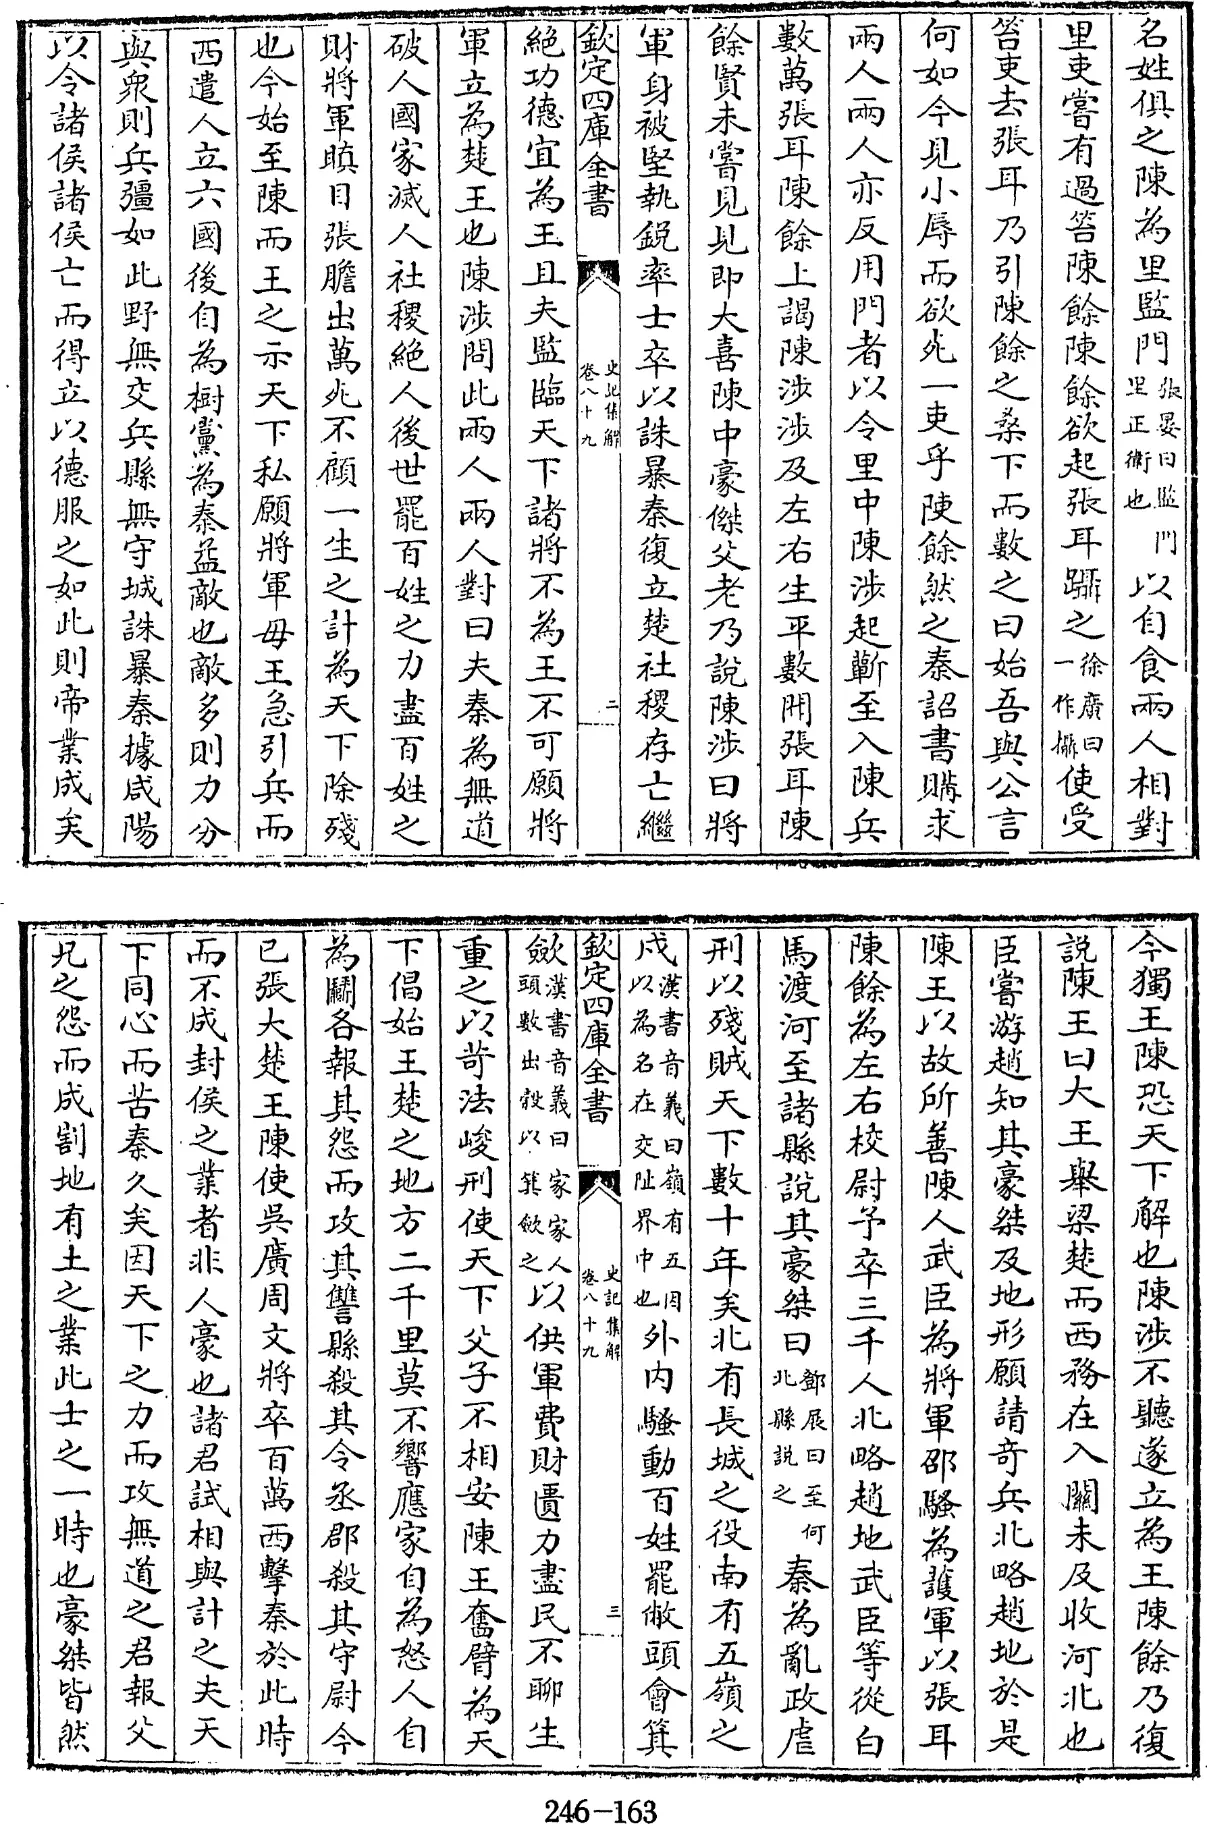 名姓俱之陳為里監門張晏曰監門里正衛也以自食兩人相對
里吏嘗有過笞陳餘陳餘欲起張耳躡之徐廣曰一作攝使受
笞吏去張耳乃引陳餘之桑下而數之曰始吾與公言
何如今見小辱而欲死一吏乎陳餘然之秦詔書購求
兩人兩人亦反用門者以令里中陳涉起蘄至入陳兵
數萬張耳陳餘上謁陳涉涉及左右生平數聞張耳陳
餘賢未嘗見見即大喜陳中豪傑父老乃說陳涉曰將
軍身被堅執銳率士卒以誅暴秦復立楚社稷存亡繼
欽定四庫全書
史記集解
卷八十九
二
絕功德宜為王且夫監臨天下諸將不為王不可願將
軍立為楚王也陳涉問此兩人兩人對曰夫秦為無道
破人國家滅人社稷絕人後世罷百姓之力盡百姓之
財將軍瞋目張膽出萬死不顧一生之計為天下除殘
也今始至陳而王之示天下私願將軍毋王急引兵而
西遣人立六國後自為樹黨為秦益敵也敵多則力分
與衆則兵彊如此野無交兵縣無守城誅暴秦據咸陽
以令諸侯諸侯亡而得立以德服之如此則帝業成矣
今獨王陳恐天下解也陳涉不聽遂立為王陳餘乃復
說陳王曰大王舉梁楚而西務在入關未及收河北也
臣嘗游趙知其豪桀及地形願請奇兵北略趙地於是
陳王以故所善陳人武臣為將軍邵騷為護軍以張耳
陳餘為左右校尉予卒三千人北略趙地武臣等從白
馬渡河至諸縣說其豪桀曰鄧展曰至河北縣說之秦為亂政虐
刑以殘賊天下數十年矣北有長城之役南有五嶺之
戍漢書音義曰嶺有五因以為名在交阯界中也外內騷動百姓罷敝頭會箕
欽定四庫全書
史記集解
卷八十九
三
斂漢書音義曰家家人頭數出穀以箕斂之以供軍費財匱力盡民不聊生
重之以苛法峻刑使天下父子不相安陳王奮臂為天
下倡始王楚之地方二千里莫不響應家自為怒人自
為鬭各報其怨而攻其讐縣殺其令丞郡殺其守尉今
已張大楚王陳使吳廣周文將卒百萬西擊秦於此時
而不成封侯之業者非人豪也諸君試相與計之夫天
下同心而苦秦久矣因天下之力而攻無道之君報父
兄之怨而成割地有土之業此士之一時也豪桀皆然
246-163